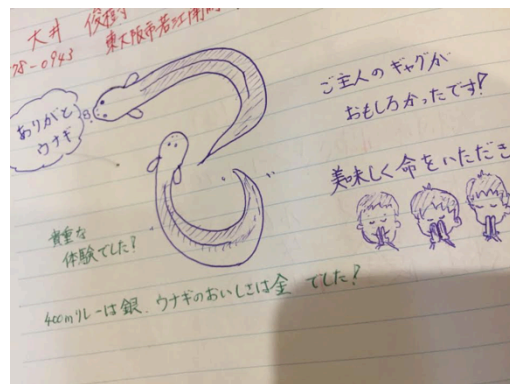 大井 俊樹
78-0943 東大阪市若江南町
ありがと
ウナギ
ご主人のギャグが
おもしろかったです!
美味しく命をいただき
貴重な
体験でした?
400mリレーは銀、ウナギのおいしさは金 でした?